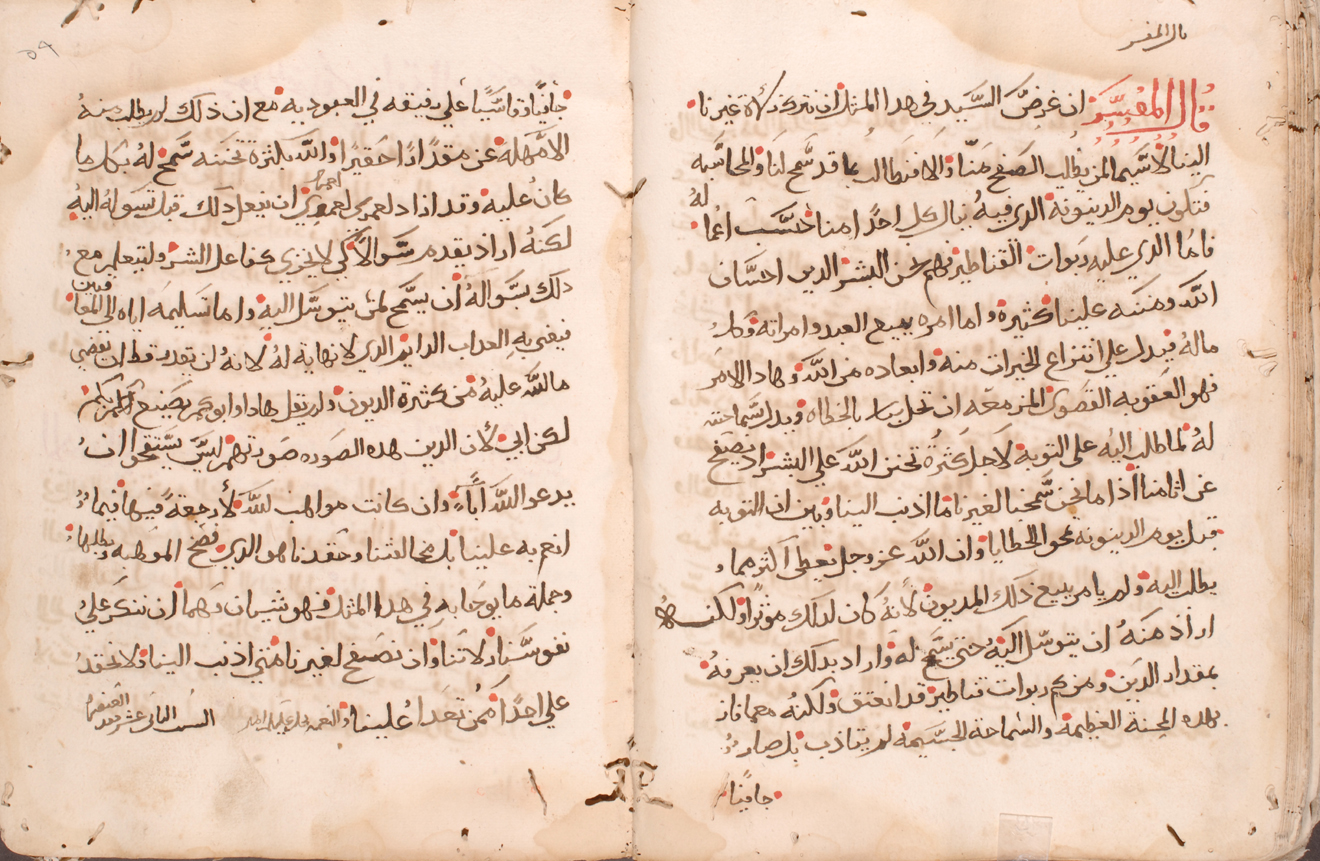 قال المفسر
قال المفسر ان غرض السيد في هدا المثل ان نترك زلاة غيرنا
الينا لا سيما لمن يطلب الصفح منا والا فنطالب بما قد سمح لنا والمحاسبه
فتكون يوم الدينونة الدي فيه ينال كل احدًا منا كحسب اعماله
فاما الدي عليه ربوات القناطير فهم نحن البشر الدين احسان
الله ومننه علينا كثيرة واما امره ببيع العبد وامراته وكل
ماله فيدل علي انتزاع الخيرات منه وابعاده من الله وهادا الامر
فهو العقوبه القصوي المزمعه ان تحل بنا بالخطاه ويدل سماحته
له لما طلب اليه علي التوبة لاجل كثرة تحنن الله علي البشر اد يصفح
عن اتامنا ادا ما نحن سمحنا لغيرنا ما ادنب الينا وبين ان التوبه
قبل يوم الدينونة تمحو الخطايا وان الله عز وجل يعطي اكثر مما
يطلب اليه ولم يامر ببيع ذلك المديون لانه كان لدلك موثرًا ولكنه
اراد منه ان يتوسل اليه حتي يسمح له واراد بدلك ان يعرفه
بمقدار الدين ومن كم ربوات قناطير قد انعتق ولكنه معما فاز
بهده المحنة العظيمة والسماحة الجسيمة لم يتادب بل صار
جافيًا
جافيًا وقاسيًا علي رفيقه في العبوديه مع ان ذلك لم يطلب منه
الا مهلة عن مقدارًا حقيرًا والله بكثرة تحننه سمح له بكل ما
كان عليه وقد اراد لعمري ان يفعل دلك قبل سواله اليه
لكنه اراد يقدم سوالًا كي لا يخزي كفاعل الشر وليتعلم مع
دلك بسواله أن يسمح لمن يتوسل اليه واما تسليمه اياه الي المعاقبين
فيعني به العداب الدايم الدي لا نهاية له لانه لن يقدر قط ان يقضي
ما لله عليه من كثرة الديون ولم يقل هادا وابوكم يصنع بكم
لكن ابي لان الدين هده الصوره صورتهم ليس يستحقوا ان
يدعو الله أباء وان كانت مواهب لله لا رجعة فيها فيما
انعم به علينا بل خبالتنا وحقدنا هو الدي فسخ الموهبه وبطلها
وجملة ما يوخا به في هدا المثل فهو شيان وهما أن نتكر علي
نفوسنا زلاتنا وان نصفح لغيرنا متي ادنب الينا ولا نحقد
علي احدًا ممن تعدا علينا